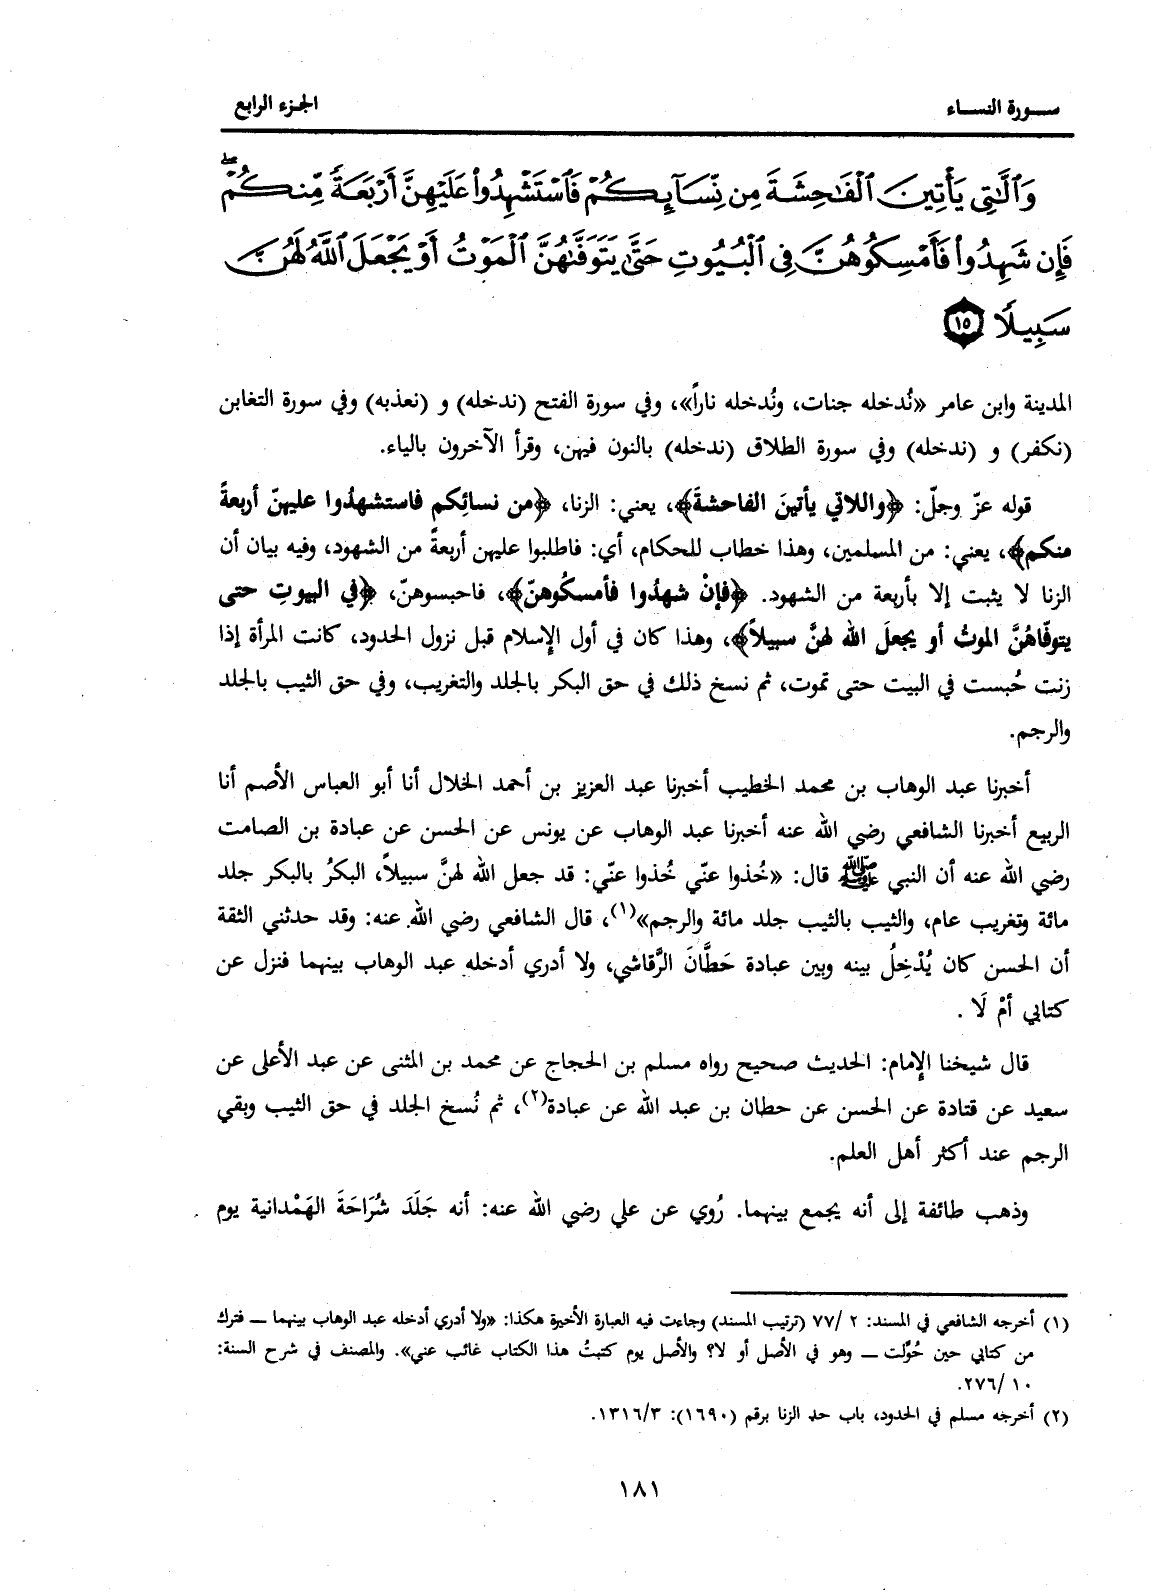 سورة النساء
الجزء الرابع
وَٱلَّٰتِى يَأْتِينَ ٱلْفَٰحِشَةَ مِن نِّسَآئِكُمْ فَٱسْتَشْهِدُوا۟ عَلَيْهِنَّ أَرْبَعَةً مِّنكُمْ ۖ
فَإِن شَهِدُوا۟ فَأَمْسِكُوهُنَّ فِى ٱلْبُيُوتِ حَتَّىٰ يَتَوَفَّىٰهُنَّ ٱلْمَوْتُ أَوْ يَجْعَلَ ٱللَّهُ لَهُنَّ
سَبِيلًا ١٥
المدينة وابن عامر «نُدخله جنات، ونُدخله ناراً»، وفي سورة الفتح (ندخله) و (نعذبه) وفي سورة التغابن
(نكفر) و (ندخله) وفي سورة الطلاق (ندخله) بالنون فيهن، وقرأ الآخرون بالياء.
قوله عزّ وجلّ: ﴿واللاتي يأتينَ الفاحشةَ﴾، يعني: الزنا، ﴿من نسائِكم فاستشهدُوا عليهنّ أربعةً
منكم﴾، يعني: من المسلمين، وهذا خطاب للحكام، أي: فاطلبوا عليهن أربعةً من الشهود، وفيه بيان أن
الزنا لا يثبت إلا بأربعة من الشهود. ﴿فإنْ شهدُوا فأمسكُوهنّ﴾، فاحبسوهنّ، ﴿في البيوتِ حتى
يتوفّاهُنَّ الموتُ أو يجعلَ الله لهنَّ سبيلاً﴾، وهذا كان في أول الإسلام قبل نزول الحدود، كانت المرأة إذا
زنت حُبست في البيت حتى تموت، ثم نسخ ذلك في حق البكر بالجلد والتغريب، وفي حق الثيب بالجلد
والرجم.
أخبرنا عبد الوهاب بن محمد الخطيب أخبرنا عبد العزيز بن أحمد الخلال أنا أبو العباس الأصم أنا
الربيع أخبرنا الشافعي رضي الله عنه أخبرنا عبد الوهاب عن يونس عن الحسن عن عبادة بن الصامت
رضي الله عنه أن النبي ﷺ قال: «خُذوا عنّي خُذوا عنّي: قد جعل الله لهنَّ سبيلاً، البكرُ بالبكر جلد
مائة وتغريب عام، والثيب بالثيب جلد مائة والرجم»(١)، قال الشافعي رضي الله عنه: وقد حدثني الثقة
أن الحسن كان يُدْخِلُ بينه وبين عبادة حَطَّانَ الرَّقاشي، ولا أدري أدخله عبد الوهاب بينهما فنزل عن
كتابي أمْ لَا .
قال شيخنا الإمام: الحديث صحيح رواه مسلم بن الحجاج عن محمد بن المثنى عن عبد الأعلى عن
سعيد عن قتادة عن الحسن عن حطان بن عبد الله عن عبادة(٢)، ثم نُسخ الجلد في حق الثيب وبقي
الرجم عند أكثر أهل العلم.
وذهب طائفة إلى أنه يجمع بينهما. رُوي عن علي رضي الله عنه: أنه جَلَدَ شُرَاحَةَ الهَمْدانية يوم
(١) أخرجه الشافعي في المسند: ٢ /٧٧ (ترتيب المسند) وجاءت فيه العبارة الأخيرة هكذا: «ولا أدري أدخله عبد الوهاب بينهما ــ فترك
من كتابي حين حُوِّلت ــ وهو في الأصل أو لا؟ والأصل يوم كتبتُ هذا الكتاب غائب عني». والمصنف في شرح السنة:
١٠ /٢٧٦.
(٢) أخرجه مسلم في الحدود، باب حد الزنا برقم (١٦٩٠): ١٣١٦/٣.
١٨١